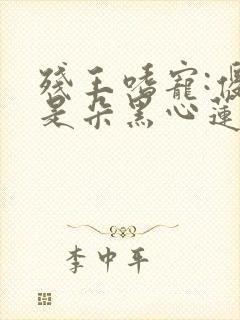 殘王嗜寵:
是朵黑心蓮
李中平